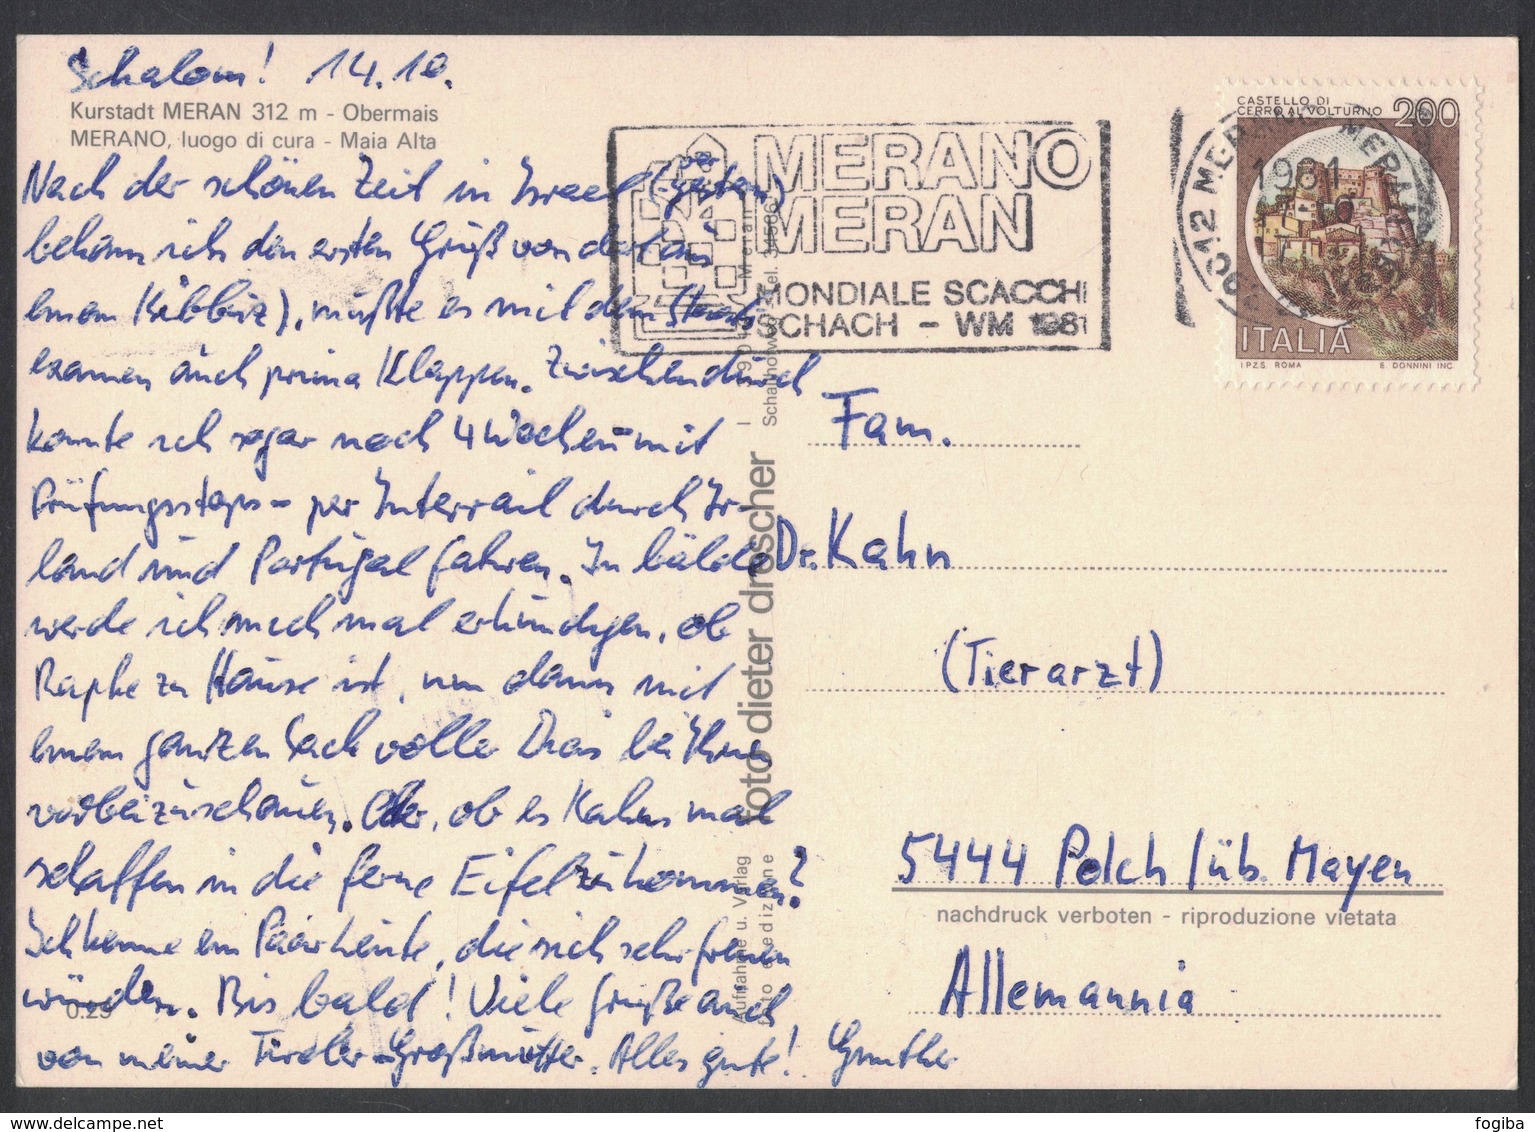 Schalom! 14.10.
Kurstadt MERAN 312 m - Obermais
MERANO, luogo di cura - Maia Alta
Nach der schönen Zeit in Israel (gestern
bekam ich den ersten Gruß von dort aus
einem Kibbuz), mußte es mit dem Staats-
examen auch prima klappen. Zwischendurch
konnte ich sogar noch 4 Wochen - mit
Prüfungsstops - per Interrail durch Ir-
land und Portugal fahren. In bälde
werde ich mich mal erkundigen, ob
Raphe zu Hause ist, um dann mit
einem ganzen Sack voller Dias bei Ihnen
vorbeizuschauen. Oder, ob es Kahns mal
schaffen in die ferne Eifel zu kommen?
Ich kenne ein Paar Leute, die sich sehr freuen
würden. Bis bald! Viele Grüße auch
von meiner Tiroler-Großmutter. Alles gute! Gunther
0.25
MERANO
MERAN
MONDIALE SCACCHI
SCHACH - WM 1981
39012 MERANO MERAN
1981
CASTELLO DI
CERRO AL VOLTURNO 200
ITALIA
I.P.Z.S. ROMA E. DONNINI INC.
foto dieter drescher
Aufnahme u. Verlag
foto e edizione
Fam.
Dr. Kahn
(Tierarzt)
5444 Polch / üb. Mayen
nachdruck verboten - riproduzione vietata
Allemannia
fogiba